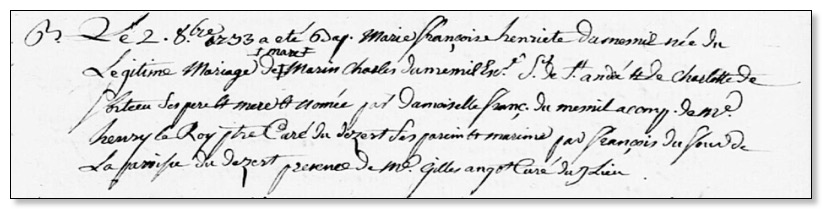 B. Le 2. 8.bre 1733 a eté bap. Marie françoise henriete dumemil née du
†marc†
Légitime Mariage de Marin Charles dumemil Ec.r S.r de S.t andré & de Charlotte de
ses pere & mere & nomée par damoiselle franç. du mesnil acomp. de M.re
henry le Roy ptre Curé du dezert ses parein & mareine par françois du four de
La paroisse du dezert presence de M.re Gilles angot Curé du Lieu